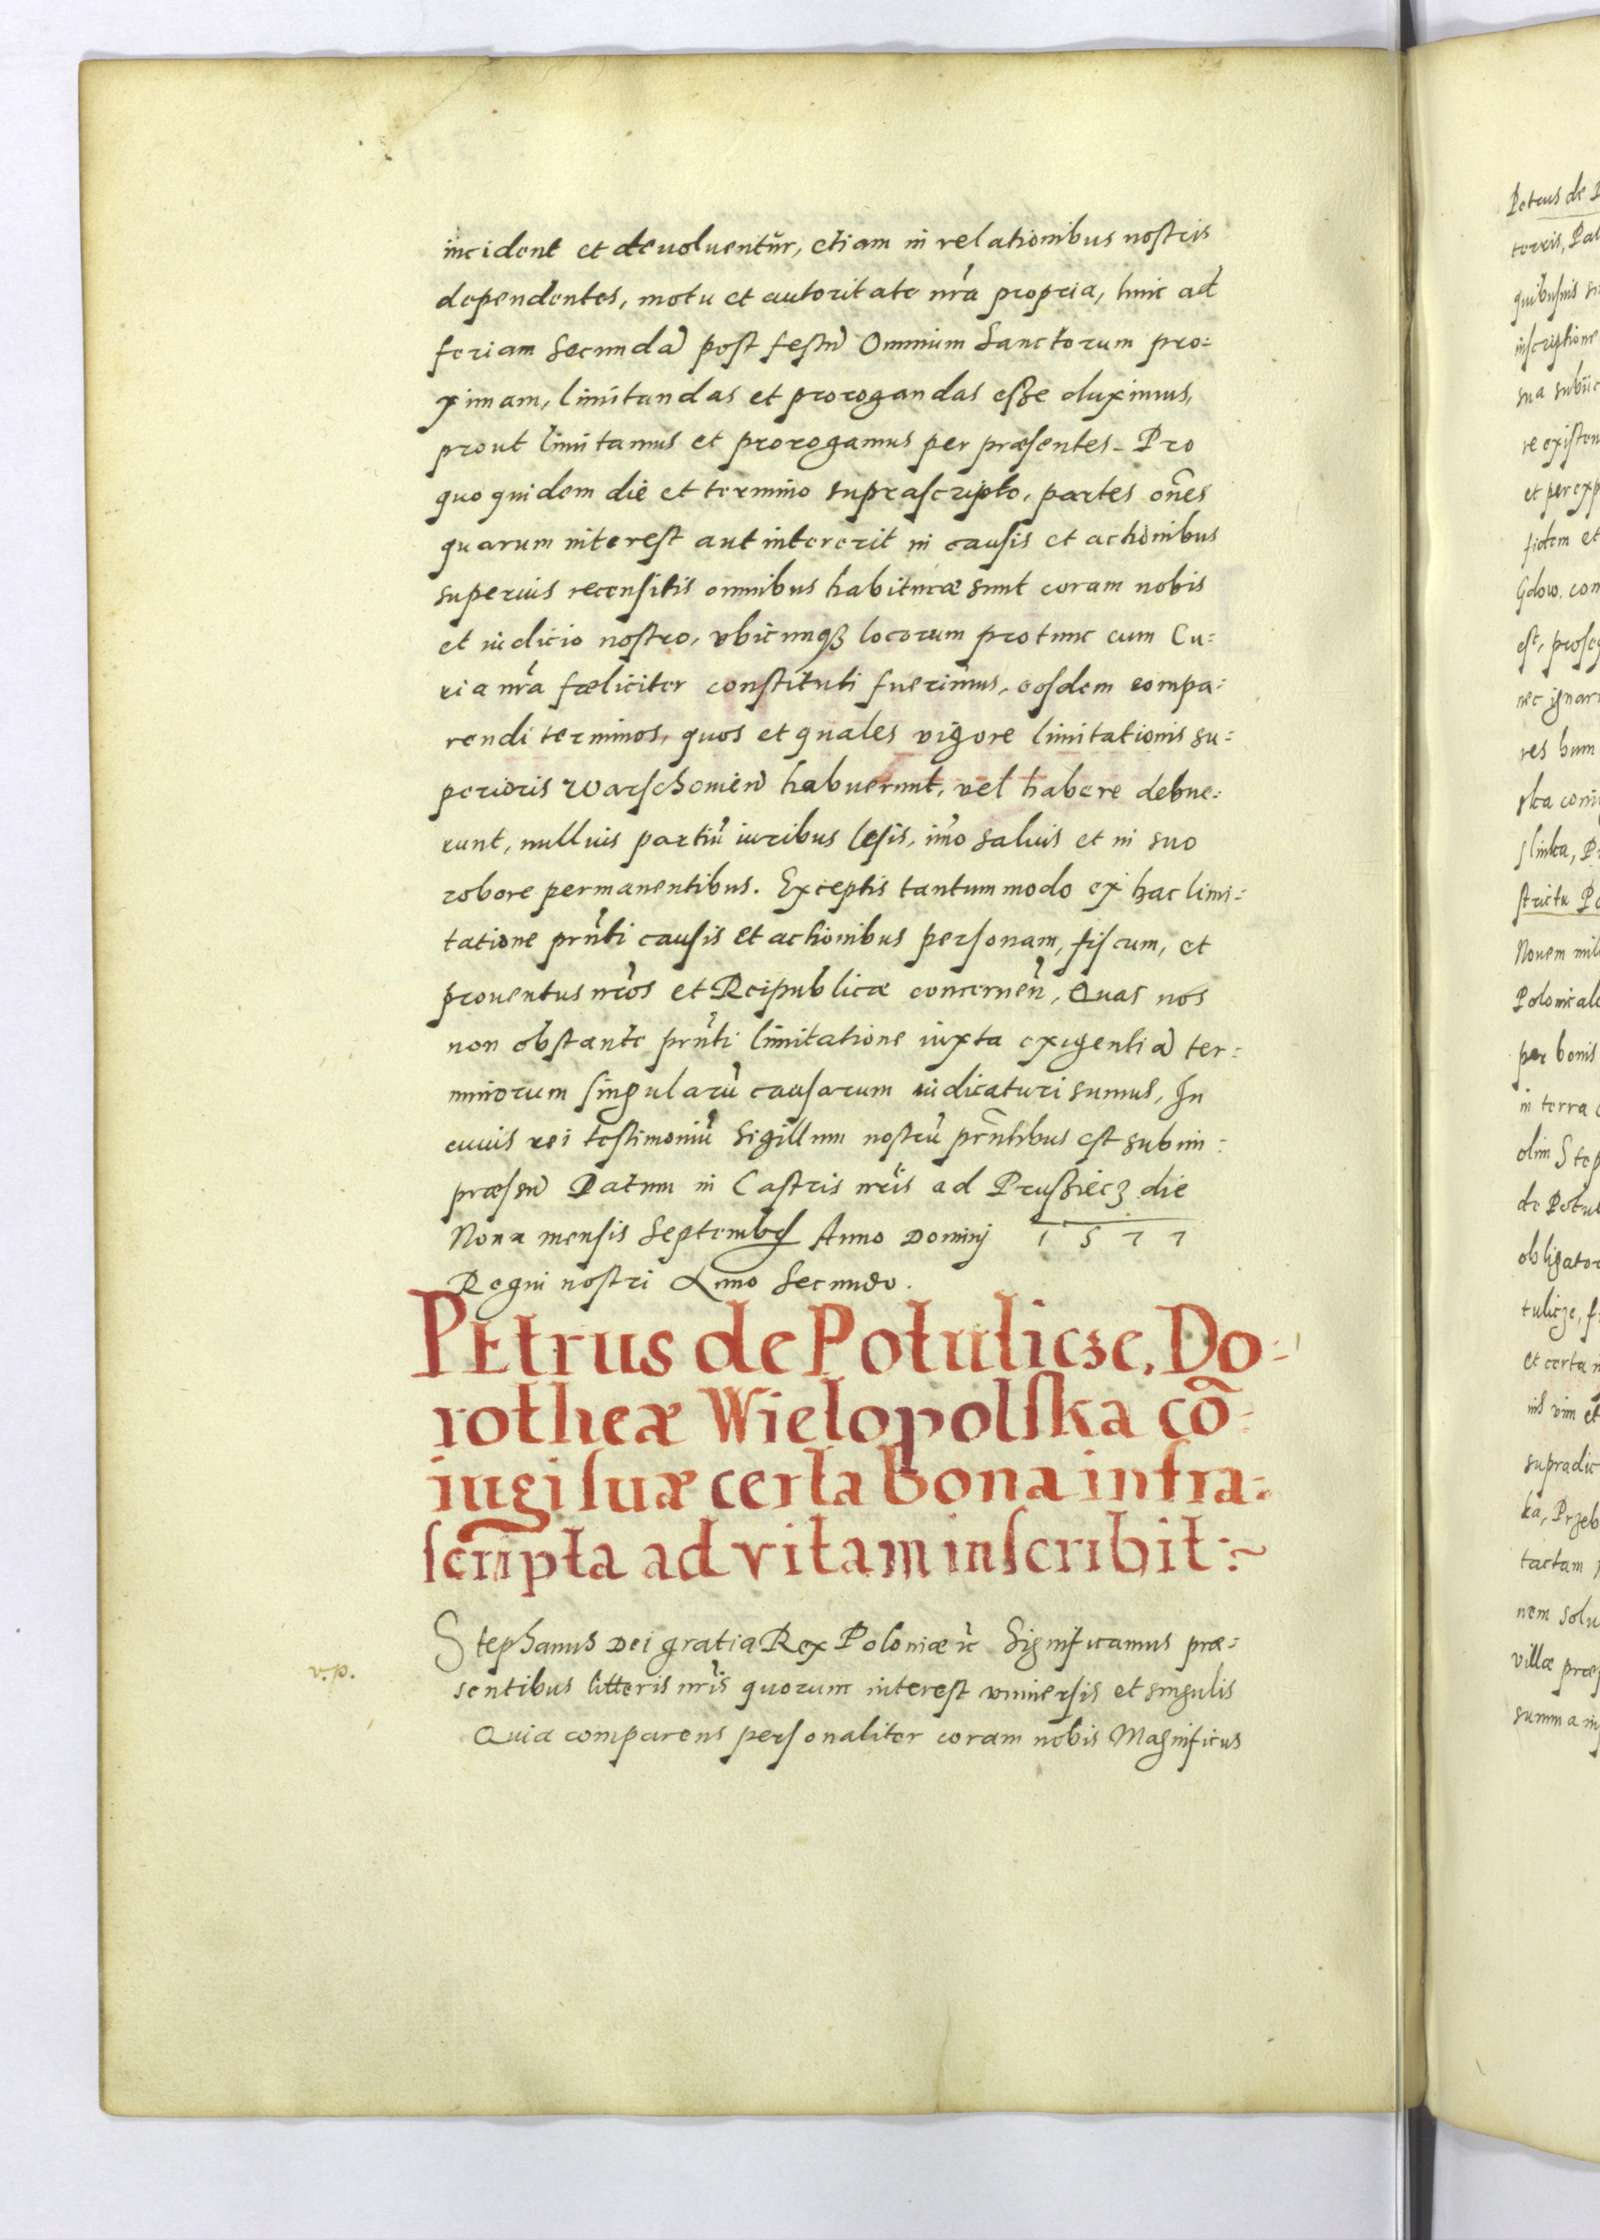 incident et deuoluentur̃, etiam in relationibus nostris
dependentes, motu et autoritate nr̃a propria, hinc ad
feriam Secundã post festũ Omnium Sanctorum pro=
ximam, limitandas et prorogandas esse duximus,
prout limitamus et prorogamus per præsentes. Pro
quo quidem die et termino suprascripto, partes oñes
quarum interest aut intererit in causis et actionibus
superius recensitis omnibus habituræ sunt coram nobis
et iudicio nostro, vbicunqꝫ locorum protunc cum Cu=
ria nr̃a fæliciter constituti fuerimus, eosdem compa=
rendi terminos, quos et quales vigore limitationis su=
perioris Warschouieñ habuerunt, vel habere debue=
runt, nullius partiũ iuribus lesis, imo saluis et in suo
robore permanentibus. Exceptis tantummodo ex hac limi=
tatione pr̃nti causis et actionibus personam, fiscum, et
prouentus nr̃os et Reipublicæ concerneñ, Quas nos
non obstante pr̃nti limitatione iuxta exigentiã ter=
minorum singularũ causarum iudicaturi sumus, In
cuius rei testimoniũ Sigillum nostrũ pr̃ntibus est subim=
præsũ Datum in Castris nr̃is ad Prussiecz die
Nona mensis Septemb Anno Dominj 1577
Regni nostri Anno Secundo.
PEtrus de Potulicze, Do=
rotheæ Wielopolska cõ=
iugi suæ certa bona infra=
scripta ad vitam inscribit:~
Stephanus Dei gratia Rex Poloniæ ꝛc Significamus præ=
v. p.
sentibus litteris nr̃is quorum interest vniuersis et singulis
Quia comparens personaliter coram nobis Magnificus
Petrus de P
terris, Pal
quibusuis
inscriptione
sua subiic
re existen
et per exp
fidem et
Gdow. con
est, prose
nec ignar
res hum
ska coni
slinka, P
strictu Po
Nouem mil
Polonical
per bonis
in terra
olim Step
de Potul
obligator
tulicze, f
et certa
nis vim et
supradic
ka, Przeb
tactam
nem solu
villæ præ
summa in